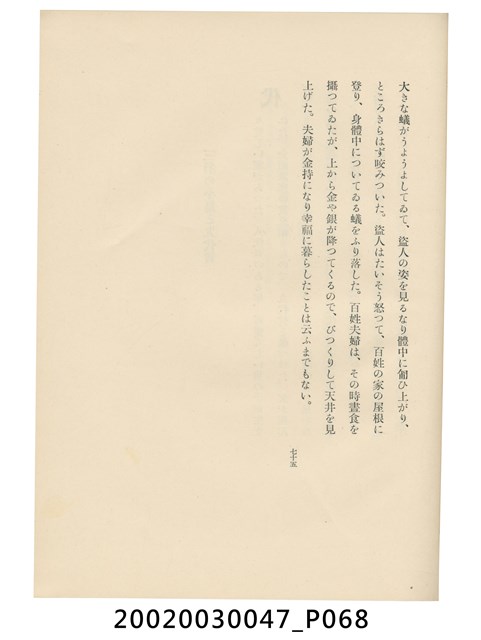 大きな蟻がうようよしてゐて、盜人の姿を見るなり體中に匍ひ上がり、
ところきらはず咬みついた。盜人はたいそう怒つて、百姓の家の屋根に
登り、身體中についてゐる蟻をふり落した。百姓夫婦は、その時晝食を
攝つてゐたが、上から金や銀が降つてくるので、びつくりして天井を見
上げた。夫婦が金持になり幸福に暮らしたことは云ふまでもない。
七十五
20020030047_P068